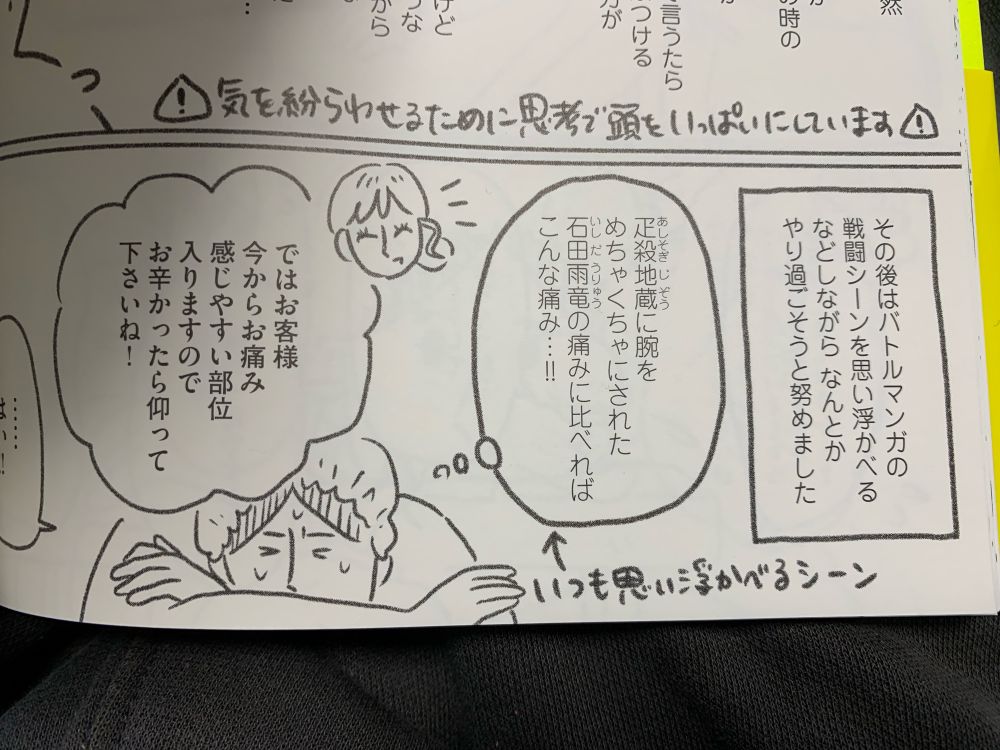 然
の時の
言うたら
つける
が
けど
うな
から
…
っ
気を紛らわせるために思考で頭をいっぱいにしています
その後はバトルマンガの
戦闘シーンを思い浮かべる
などしながら なんとか
やり過ごそうと努めました
あしそぎじぞう
疋殺地蔵に腕を
めちゃくちゃにされた
いしだうりゅう
石田雨竜の痛みに比べれば
こんな痛み…!!
いつも思い浮かべるシーン
ではお客様
今からお痛み
感じやすい部位
入りますので
お辛かったら仰って
下さいね!
……
はい!!